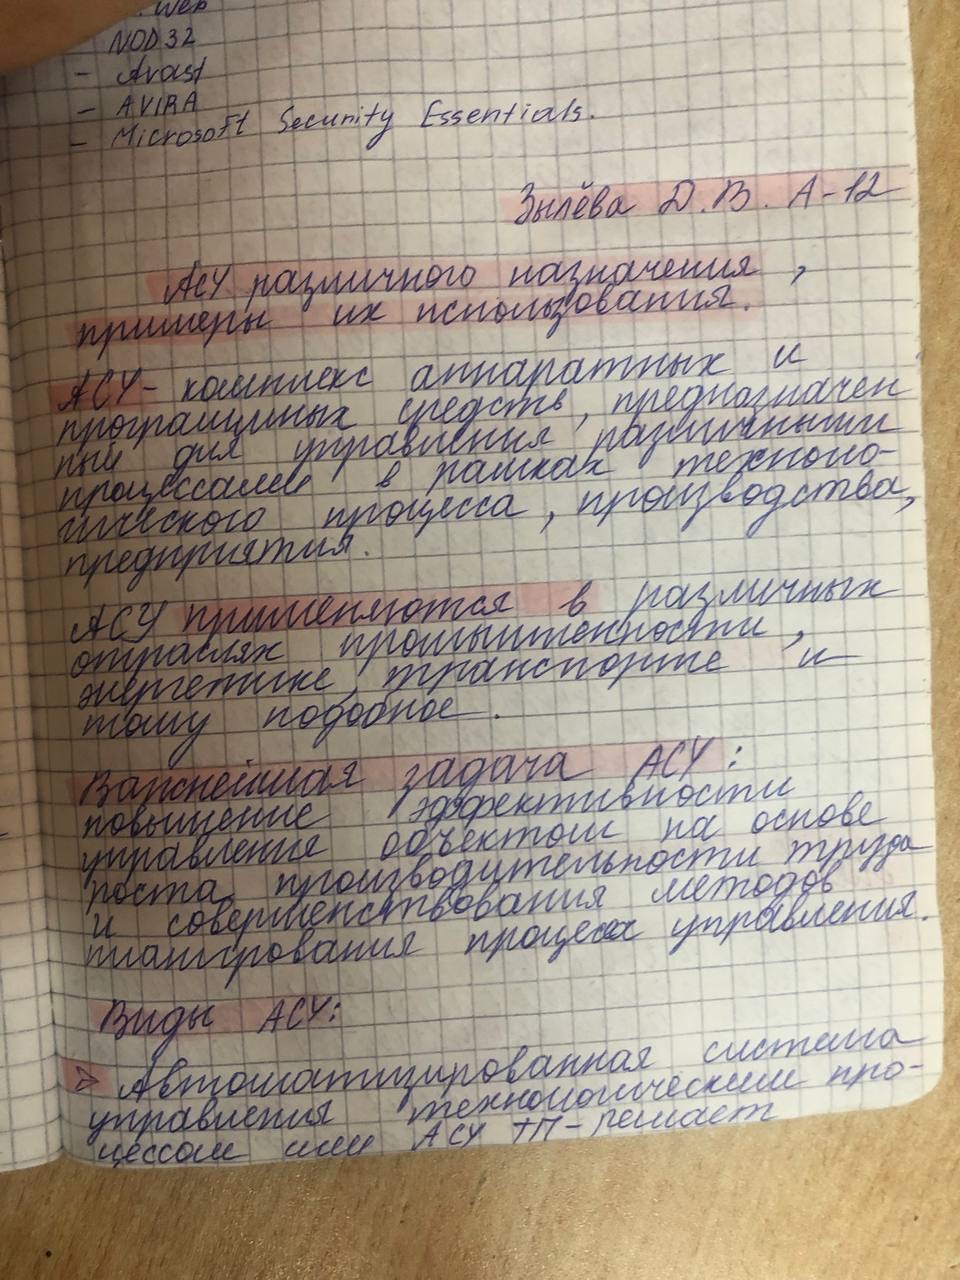 . Web
NOD32
- Avast
- AVIRA
- Microsoft Security Essentials.
Зылёва Д.В. А-12
АСУ различного назначения,
примеры их использования.
АСУ- комплекс аппаратных и
программных средств, предназначен
ный для управления различными
процессами в рамках техноло-
гического процесса, производства,
предприятия.
АСУ применяются в различных
отраслях промышленности,
энергетике, транспорте и
тому подобное.
Важнейшая задача АСУ:
повышение эффективности
управления объектом на основе
роста производительности труда
и совершенствования методов
планирования процесса управления.
Виды АСУ:
Автоматизированная система
управления технологическим про-
цессом или АСУ ТП-решает